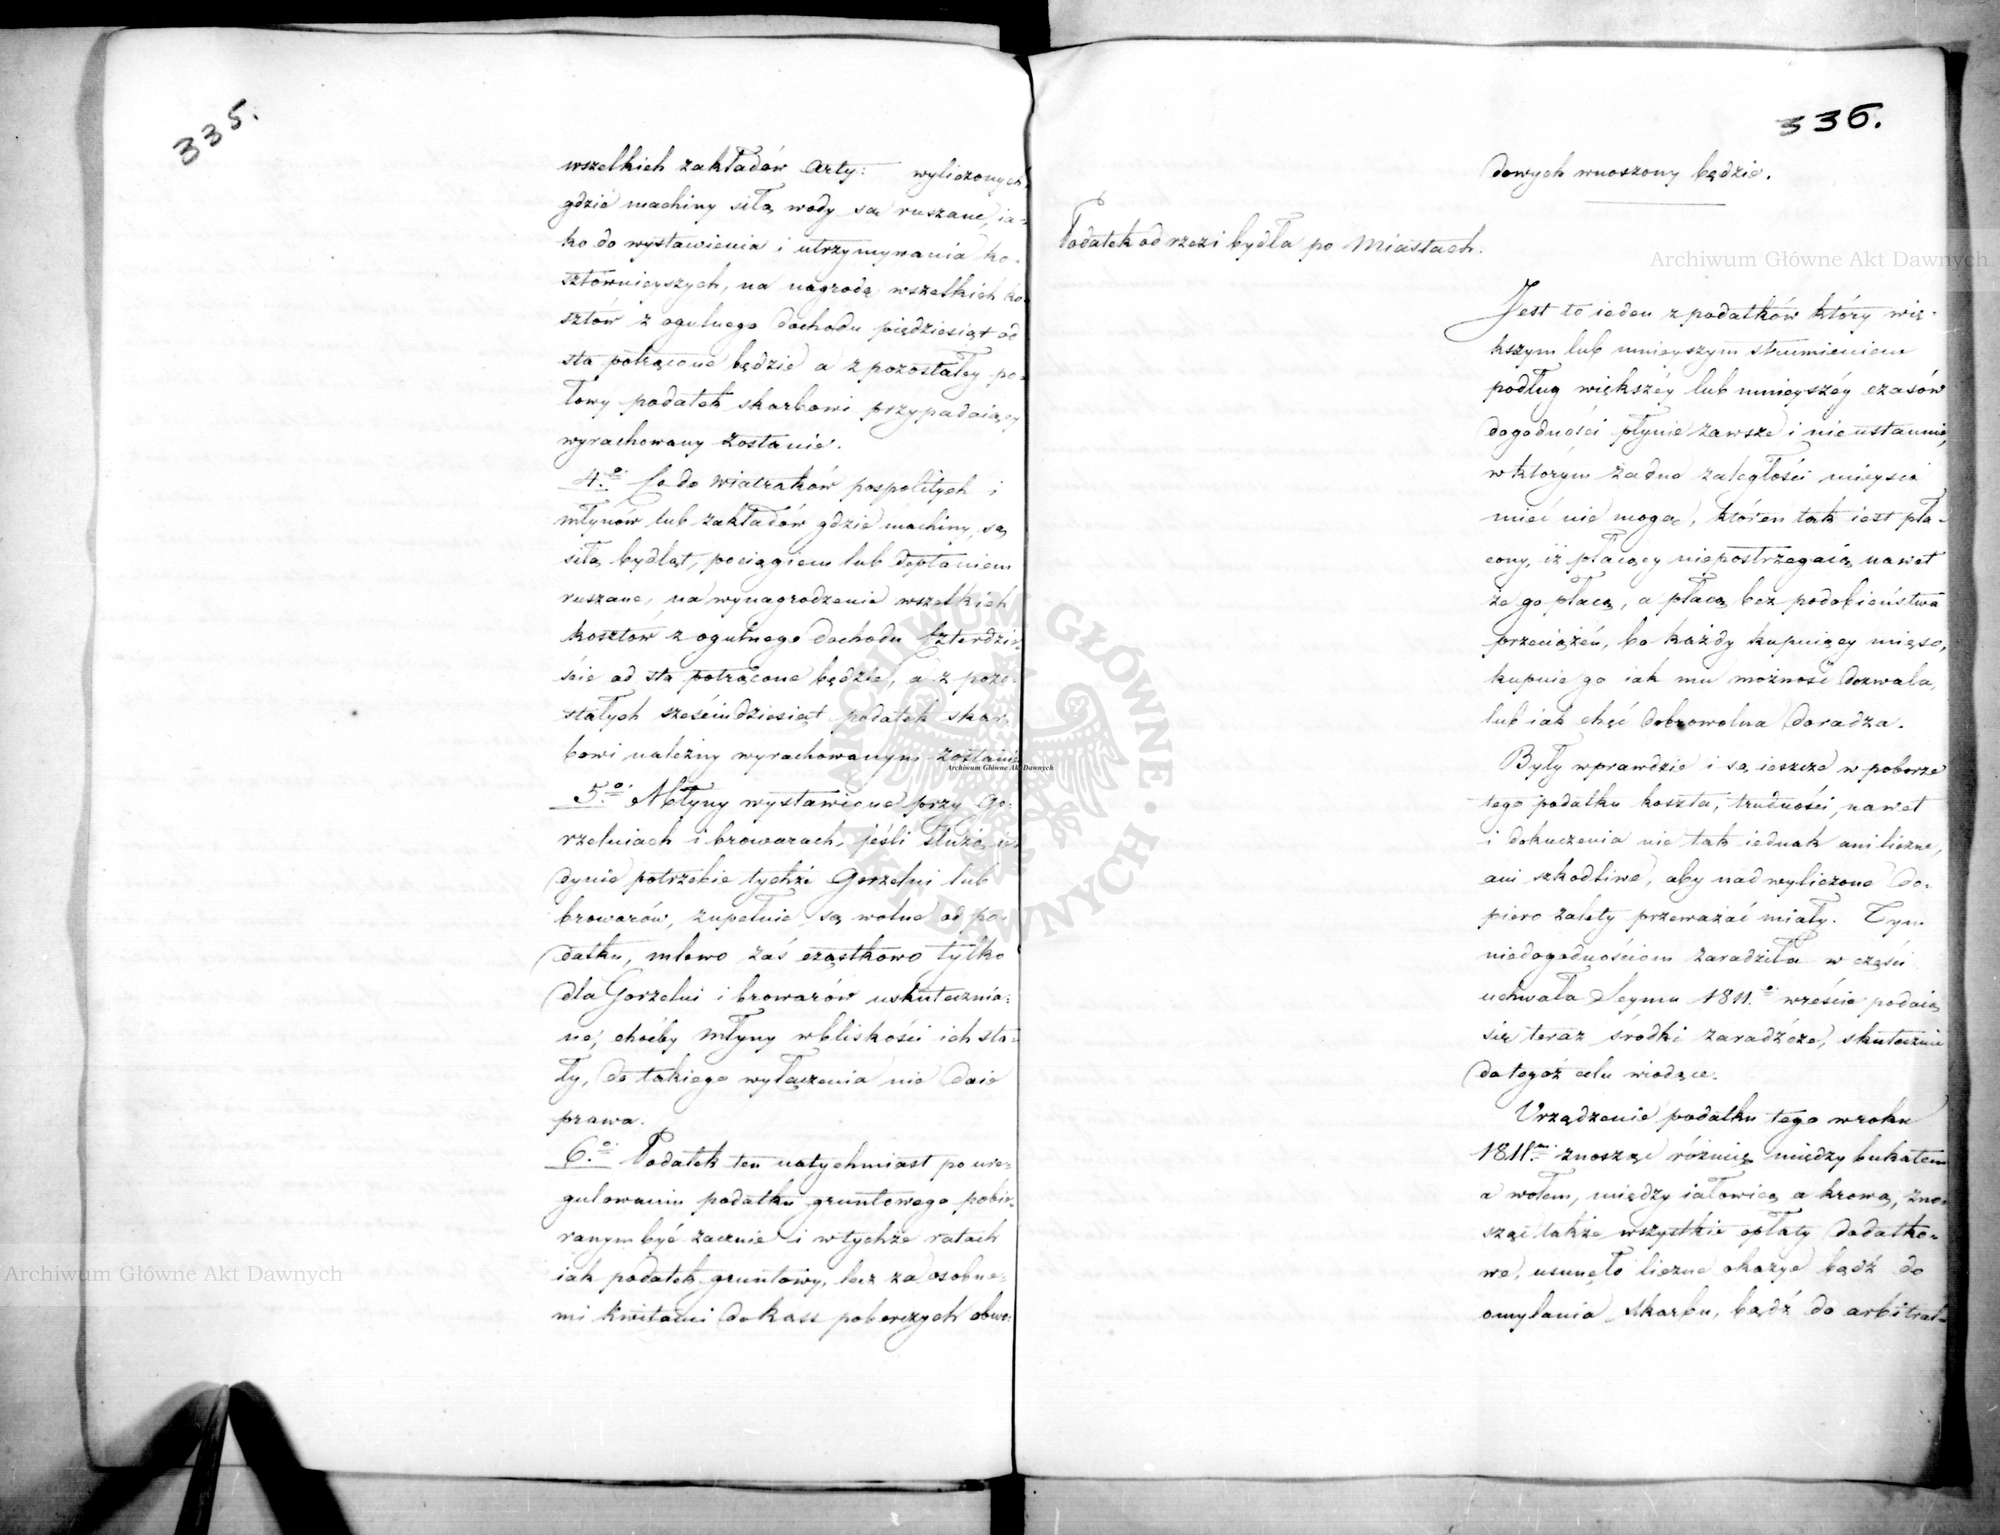 335.
wszelkich zakładów Arty: wyliczonych,
gdzie machiny siłą wody są ruszane, ia-
ko do wystawienia i utrzymywania ko-
sztownieyszych, na nagrodę wszelkich ko-
sztów z ogulnego dochodu pięćdziesiąt od
sta potrącone będzie a z pozostałey po-
łowy podatek skarbowi przypadaiący
wyrachowany zostanie.
4.o Co do wiatraków pospolitych i
młynów lub zakładów gdzie machiny, są
siłą bydląt, pociągiem lub deptaniem
ruszane, na wynagrodzenie wszelkich
kosztów z ogulnego dochodu czterdzie-
ście od sta potrącone będzie, a z pozo-
stałych sześćdziesiąt podatek skar-
bowi należny wyrachowanym zostanie
5.o Młyny wystawione przy Go-
rzelniach i browarach, jeśli służą ie-
dynie potrzebie tychże Gorzelni lub
browarów, zupełnie są wolne od po-
datku, mlewo zaś cząstkowo tylko
dla Gorzelni i browarów uskutecznia-
ne, choćby młyny w bliskości ich sta-
ły, do takiego wyłączenia nie daie
prawa.
6.o Podatek ten natychmiast po ure-
gulowaniu podatku gruntowego pobie-
ranym być zacznie i w tychże ratach
iak podatek gruntowy, lecz za osobne-
mi kwitami do kass poborczych obwo-
336.
dowych wnoszony będzie.
Podatek od rzezi bydła po Miastach.
Jest to ieden z podatków który wię-
kszym lub mnieyszym strumieniem
podług większéy lub mnieyszéy czasów
dogodności płynie zawsze i nieustannie,
w którym żadne zaległości mieysca
mieć nie mogą, któren tak iest pła-
cony, iż płacący niepostrzegaią nawet
że go płacą, a płacą bez podobieństwa
przeciążeń, bo każdy kupuiący mięso,
kupuie go iak mu możność dozwala,
lub iak chęć dobrowolna doradza.
Były wprawdzie i są ieszcze w poborze
tego podatku koszta, trudności, nawet
i dokuczenia nie tak iednak ani liczne,
ani szkodliwe, aby nad wyliczone do-
piero zalety przeważać miały. Tym
niedogodnościom zaradziła w części
uchwała Seymu 1811.o wreście podaią
się teraz środki zaradźcze, skutecznie
do tegoż celu wiodące.
Urządzenie podatku tego w roku
1811.m znosząc różnicę między bukatem
a wołem, między iałowicą a krową, zno-
sząc także wszystkie opłaty dodatko-
we, usunęło liczne okazye bądź do
omylania skarbu, bądź do arbitral-
Archiwum Główne Akt Dawnych
Archiwum Główne Akt Dawnych
Archiwum Główne Akt Dawnych
ARCHIWUM GŁÓWNE AKT DAWNYCH